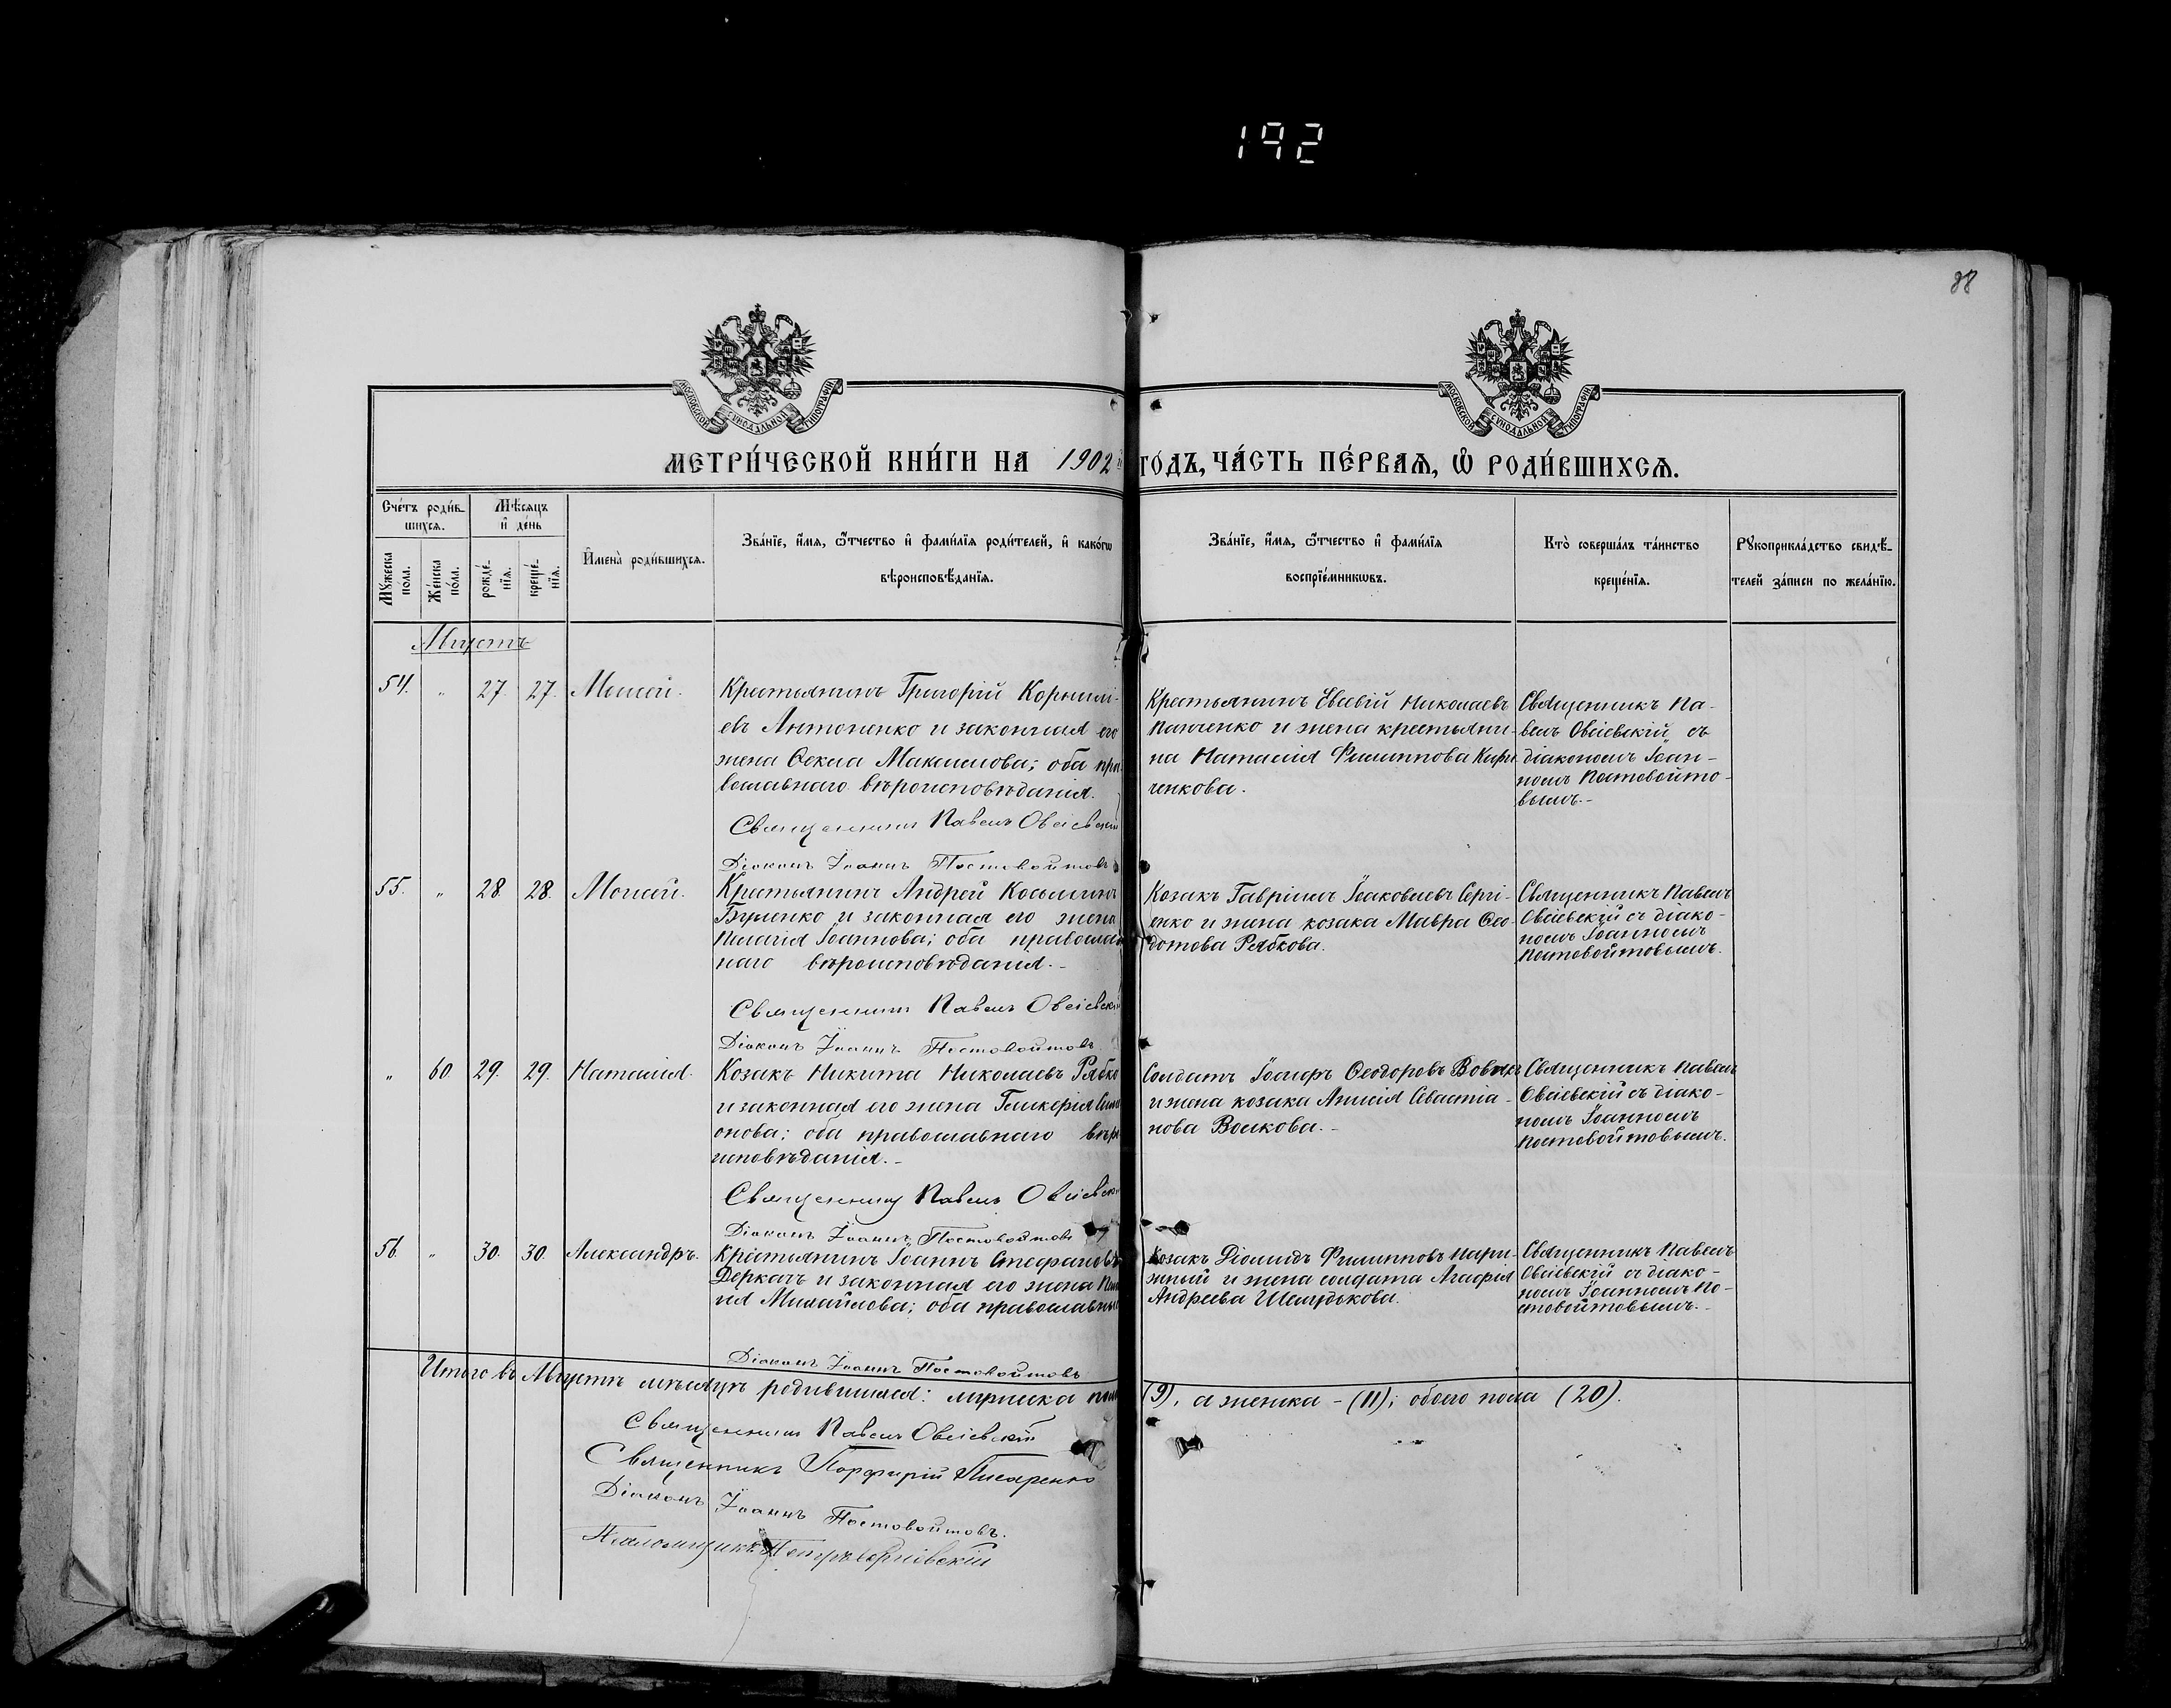 192
88
МОСКОВСКОЙ СѴНОДАЛЬНОЙ ТИПОГРАФІИ
МОСКОВСКОЙ СѴНОДАЛЬНОЙ ТИПОГРАФІИ
МЕТРИ́ЧЕСКОЙ КНИ́ГИ НА 1902 ГО́ДЪ, ЧА́СТЬ ПЕ́РВАЯ, Ѡ РОДИ́ВШИХСЯ.
Сче́тъ роди́в-
шихся.
Мѣсяцъ
и де́нь
Мꙋ́жеска
по́ла.
Же́нска
по́ла.
рожде́-
нїя.
креще́-
нїя.
Имена̀ роди́вшихся.
Зва́нїе, и́мя, ѻ́тчество и фами́лїя роди́телей, и како́гѡ
вѣроисповѣ́данїя.
Зва́нїе, и́мя, ѻ́тчество и фами́лїя
воспрїе́мникѡвъ.
Кто̀ соверша́лъ та́инство
креще́нїя.
Рꙋкоприкла́дство свидѣ́-
телей за́писи по жела́нїю.
Августъ
54. " 27. 27. Моисей.
Крестьянинъ Григорій Корнилі-
евъ Антоненко и законная его
жена Ѳекла Максимова; оба пра
вославнаго вѣроисповѣданія.
Священникъ Павелъ Овсіевскій
Діаконъ Іоаннъ Постовойтовъ
Крестьянинъ Евсевій Николаевъ
Панченко и жена крестьяни-
на Наталія Филиппова Кири
ченкова.
Священникъ Па-
велъ Овсіевскій съ
діакономъ Іоан-
номъ Постовойто-
вымъ.-
55. " 28. 28. Моисей.
Крестьянинъ Андрей Косьминъ
Буленко и законная его жена
Пелагія Іоаннова; оба православ
наго вѣроисповѣданія.-
Священникъ Павелъ Овсіевскій
Діаконъ Іоаннъ Постовойтовъ
Козакъ Гавріилъ Іаковлевъ Сергі-
енко и жена козака Мавра Ѳео-
дотова Рябкова.
Священникъ Павелъ
Овсіевскій съ діако-
номъ Іоанномъ
Постовойтовымъ.
" 60. 29. 29. Наталія.
Козакъ Никита Николаевъ Рябко
и законная его жена Гликерія Сим
онова; оба православнаго вѣро
исповѣданія.-
Священникъ Павелъ Овсіевскій
Діаконъ Іоаннъ Постовойтовъ
Солдатъ Іосифъ Ѳеодоровъ
и жена козака Анисія Севастіа-
нова Волкова.-
Священникъ Павелъ
Овсіевскій съ діако-
номъ Іоанномъ
Постовойтовымъ.
56. " 30. 30. Александръ.
Крестьянинъ Іоаннъ Стефановъ
Деркачъ и законная его жена Пела
гія Михайлова; оба православны
Діаконъ Іоаннъ Постовойтовъ
Козакъ Діомидъ Филипповъ Пари-
жный и жена солдата Агафія
Андреева Шелудькова.
Священникъ Павелъ
Овсіевскій съ діако-
номъ Іоанномъ По-
стовойтовымъ.-
Итого въ Августѣ мѣсяцѣ родившихся: мужеска пола (9), а женска - (11); обоего пола (20).
Священникъ Павелъ Овсіевскій
Священникъ Порфирій Писаренко
Діаконъ Іоаннъ Постовойтовъ.
Псаломщикъ Петръ